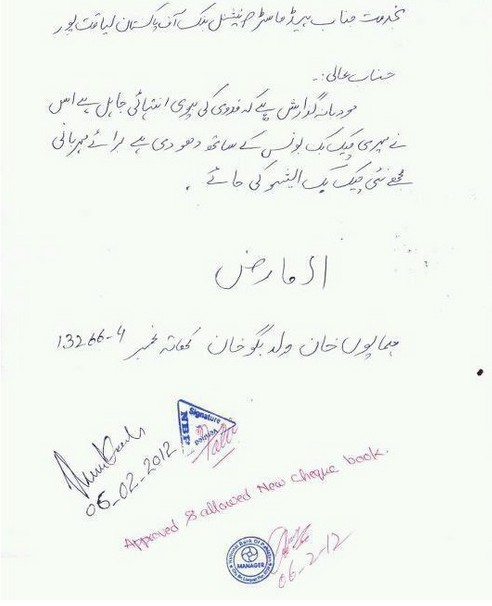 بخدمت جناب ہیڈ ماسٹر صاحب نیشنل بنک آف پاکستان لیاقت پور
جناب عالی:۔
مودبانہ گذارش ہے کہ فدوی کی بیوی انتہائی جاہل ہے اس
نے میری چیک بک بونس کے ساتھ دھو دی ہے برائے مہربانی
مجھے نئی چیک بک ایشو کی جائے۔
العارض
ہمایوں خان ولد بگو خان کھاتہ نمبر 13266-4
Signature
Verified
NBP
06-02-2012
Approved & allowed New cheque book.
National Bank Of Pakistan
MANAGER
06-2-12